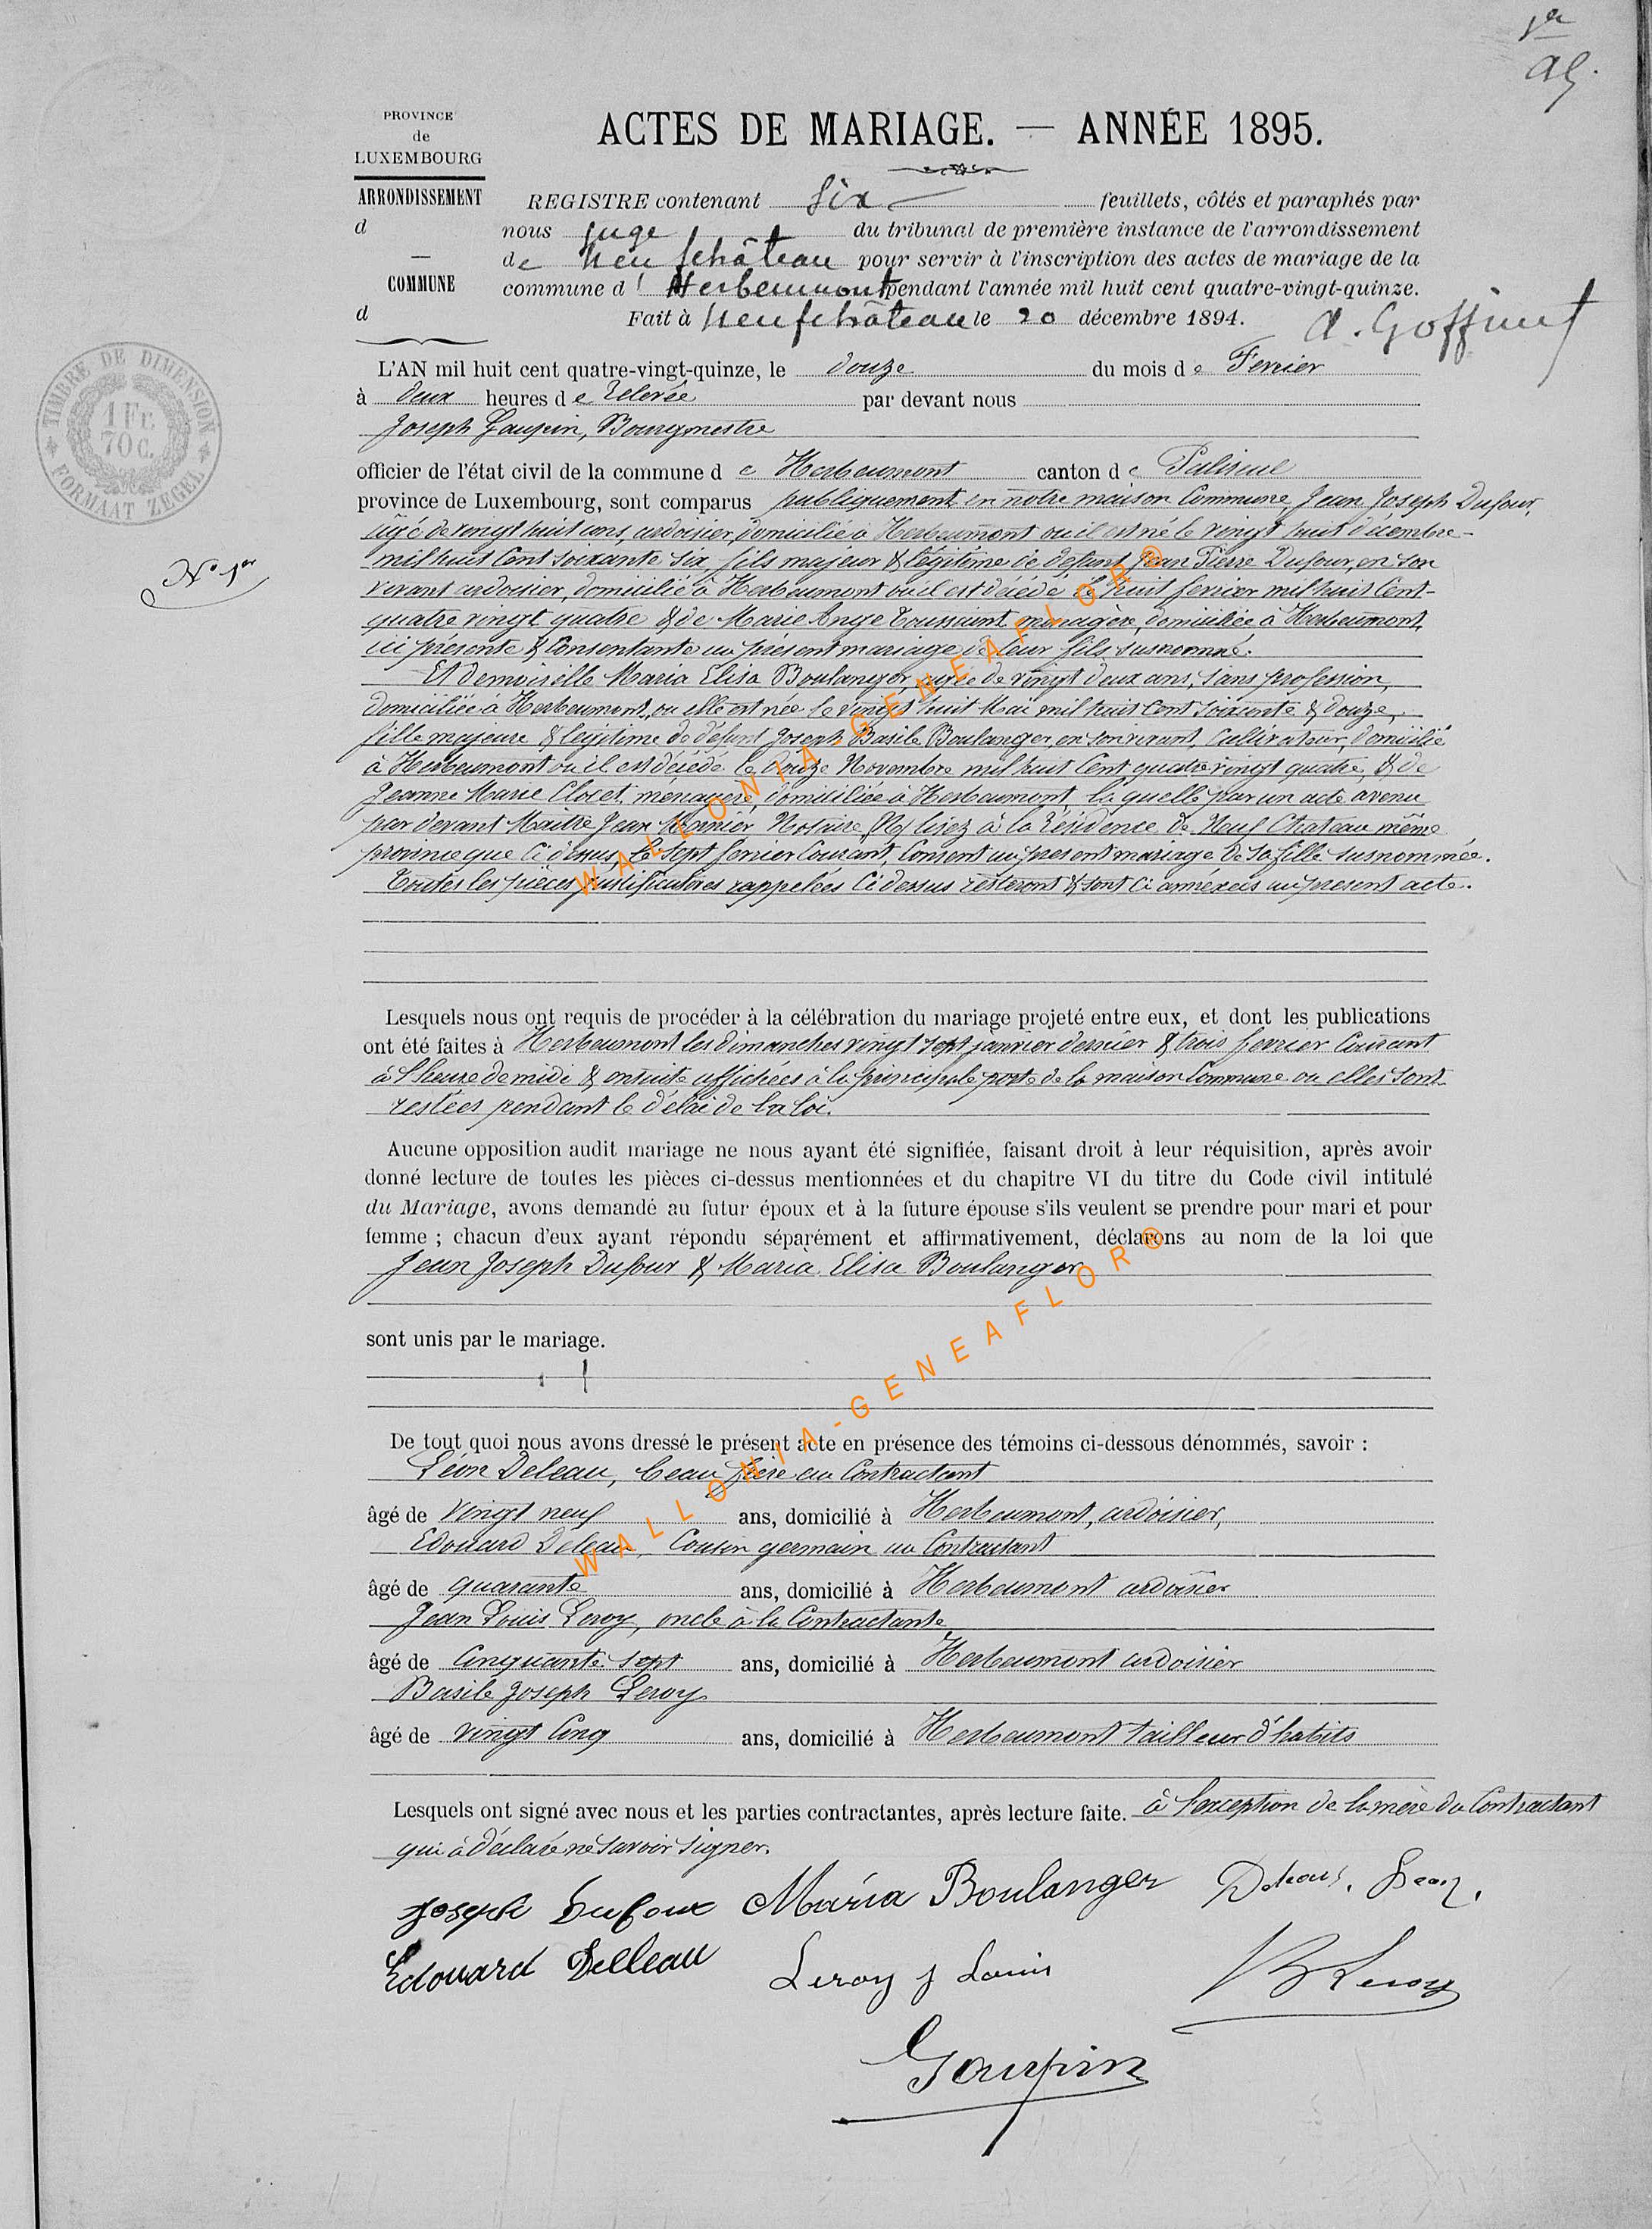 1er
AG.
PROVINCE
de
LUXEMBOURG
ARRONDISSEMENT
d
COMMUNE
d
ACTES DE MARIAGE. — ANNÉE 1895.
REGISTRE contenant six feuillets, côtés et paraphés par
nous juge du tribunal de première instance de l'arrondissement
de Neufchâteau pour servir à l'inscription des actes de mariage de la
commune d'Herbeumont pendant l'année mil huit cent quatre-vingt-quinze.
Fait à Neufchâteau le 20 décembre 1894. A. Goffinet
TIMBRE DE DIMENSION
1 Fr.
70 C.
FORMAAT ZEGEL
L'AN mil huit cent quatre-vingt-quinze, le douze du mois de Fevrier
à deux heures de relevée par devant nous
Joseph Gaupin, Bourgmestre
officier de l'état civil de la commune de Herbeumont canton de Paliseul
province de Luxembourg, sont comparus publiquement en notre maison Commune, Jean Joseph Dufour,
âgé de vingt huit ans, ardoisier, domicilié à Herbeumont ou il est né le vingt huit décembre
N° 1er
mil huit Cent soixante six, fils majeur & légitime de defunt Jean Pierre Dufour, en son
vivant ardoisier, domicilié à Herbeumont où il est décédé le huit fevrier mil huit Cent
quatre vingt quatre & de Marie Ange Toussaint, ménagère, domiciliée à Herbeumont,
ici présente & Consentante au présent mariage de leur fils susnommé.
Et demoiselle Maria Elisa Boulanger, agée de vingt deux ans, sans profession,
domiciliée à Herbeumont, ou elle est née le vingt huit Mai mil huit Cent soixante & douze,
fille majeure & légitime de défunt Joseph Basile Boulanger, en son vivant, Cultivateur, domicilié
à Herbeumont ou il est décédé le douze Novembre mil huit Cent quatre vingt quatre, & de
Jeanne Marie Closet, menagère, domiciliée à Herbeumont, la quelle par un acte avenu
par devant Maitre Jean Notaire, lisez à la résidence de Neuf Chateau même
province que Ci dessus, le sept fevrier Courant, Consent au present mariage de sa fille susnommée.
Toutes les pièces justificatives rappelées Ci dessus resteront & sont Ci annéxées au présent acte.
Lesquels nous ont requis de procéder à la célébration du mariage projeté entre eux, et dont les publications
ont été faites à Herbeumont les dimanches vingt sept janvier dernier & trois fevrier Courant
à l'heure de midi & ensuite affichées à la principale porte de la maison Commune ou elles sont
restées pendant le délai de la loi.
Aucune opposition audit mariage ne nous ayant été signifiée, faisant droit à leur réquisition, après avoir
donné lecture de toutes les pièces ci-dessus mentionnées et du chapitre VI du titre du Code civil intitulé
du Mariage, avons demandé au futur époux et à la future épouse s'ils veulent se prendre pour mari et pour
femme ; chacun d'eux ayant répondu séparément et affirmativement, déclarons au nom de la loi que
Jean Joseph Dufour & Maria Elisa Boulanger
sont unis par le mariage.
De tout quoi nous avons dressé le présent acte en présence des témoins ci-dessous dénommés, savoir :
Léon Deleau, beau frère au Contractant
âgé de vingt neuf ans, domicilié à Herbeumont, ardoisier,
Edouard Deleau, Cousin germain au Contractant
âgé de quarante ans, domicilié à Herbeumont ardoisier
Jean Louis Leroy, oncle à la Contractante
âgé de Cinquante sept ans, domicilié à Herbeumont ardoisier
Basile Joseph Leroy
âgé de vingt Cinq ans, domicilié à Herbeumont tailleur d'habits
Lesquels ont signé avec nous et les parties contractantes, après lecture faite. à l'exception de la mère du Contractant
qui à déclaré ne savoir signer.
Joseph Dufour Maria Boulanger
Edouard Delleau Leroy J Louis B Leroy
Gaupin
WALLONIA-GENEAFLOR®
WALLONIA-GENEAFLOR®